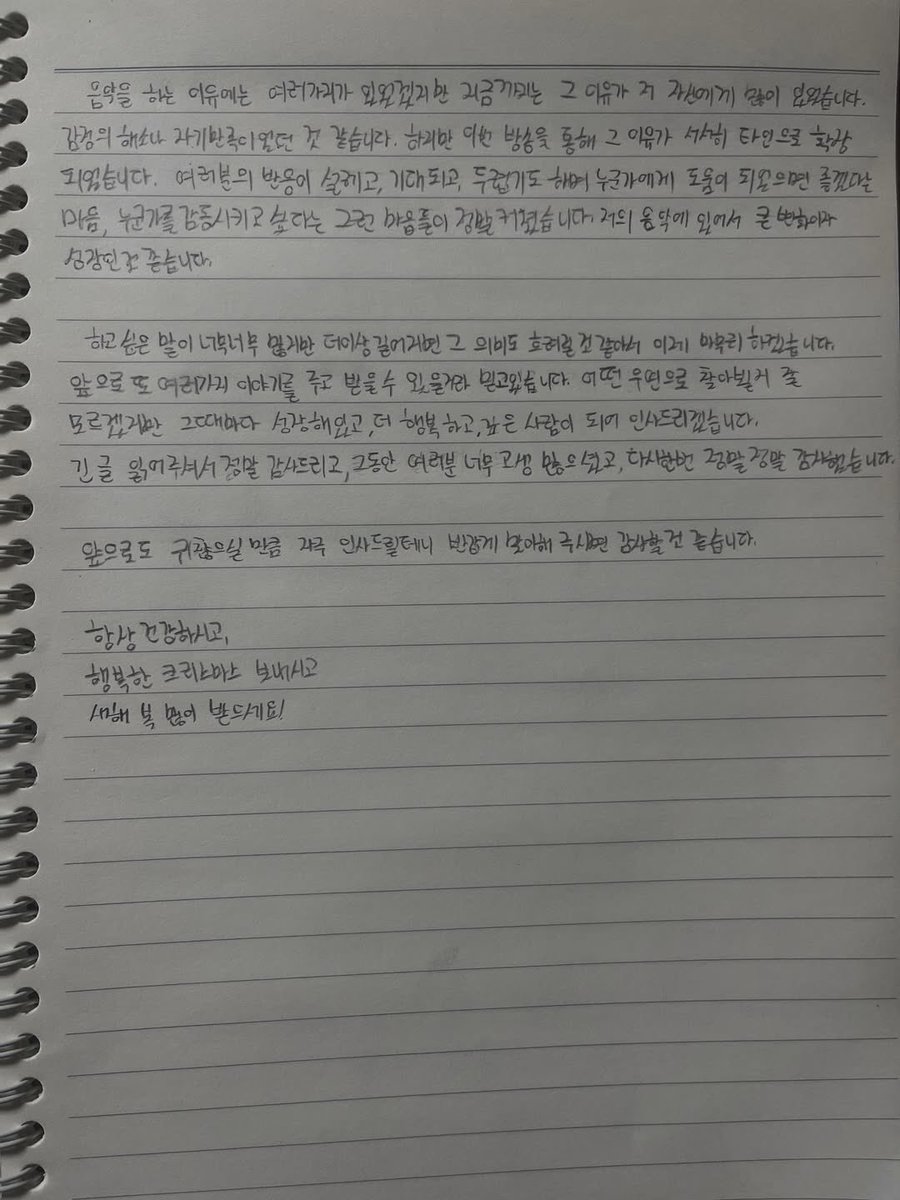 음악을 하는 이유에는 여러가지가 있겠지만 지금까지는 그 이유가 저 자신에게 많이 있었습니다.
감정의 해소나 자기만족이었던 것 같습니다. 하지만 이번 방송을 통해 그 이유가 서서히 타인으로 확장
되었습니다. 여러분의 반응이 설레고, 기대되고, 두렵기도 하며 누군가에게 도움이 되었으면 좋겠다는
마음, 누군가를 감동시키고 싶다는 그런 마음들이 정말 커졌습니다. 저의 음악에 있어서 큰 변화이자
성장인 것 같습니다.
하고싶은 말이 너무너무 많지만 더이상 길어지면 그 의미도 흐려질 것 같아서 이제 마무리 하겠습니다.
앞으로 또 여러가지 이야기를 주고 받을 수 있을거라 믿고있습니다. 어떤 우연으로 찾아뵐지 잘
모르겠지만 그때마다 성장해있고, 더 행복하고, 깊은 사람이 되어 인사드리겠습니다.
긴 글 읽어주셔서 정말 감사드리고, 그동안 여러분 너무 고생 많으셨고, 다시한번 정말정말 감사했습니다.
앞으로도 귀찮으실 만큼 자주 인사드릴테니 반갑게 맞아해 주시면 감사할 것 같습니다.
항상 건강하시고,
행복한 크리스마스 보내시고
새해 복 많이 받으세요!